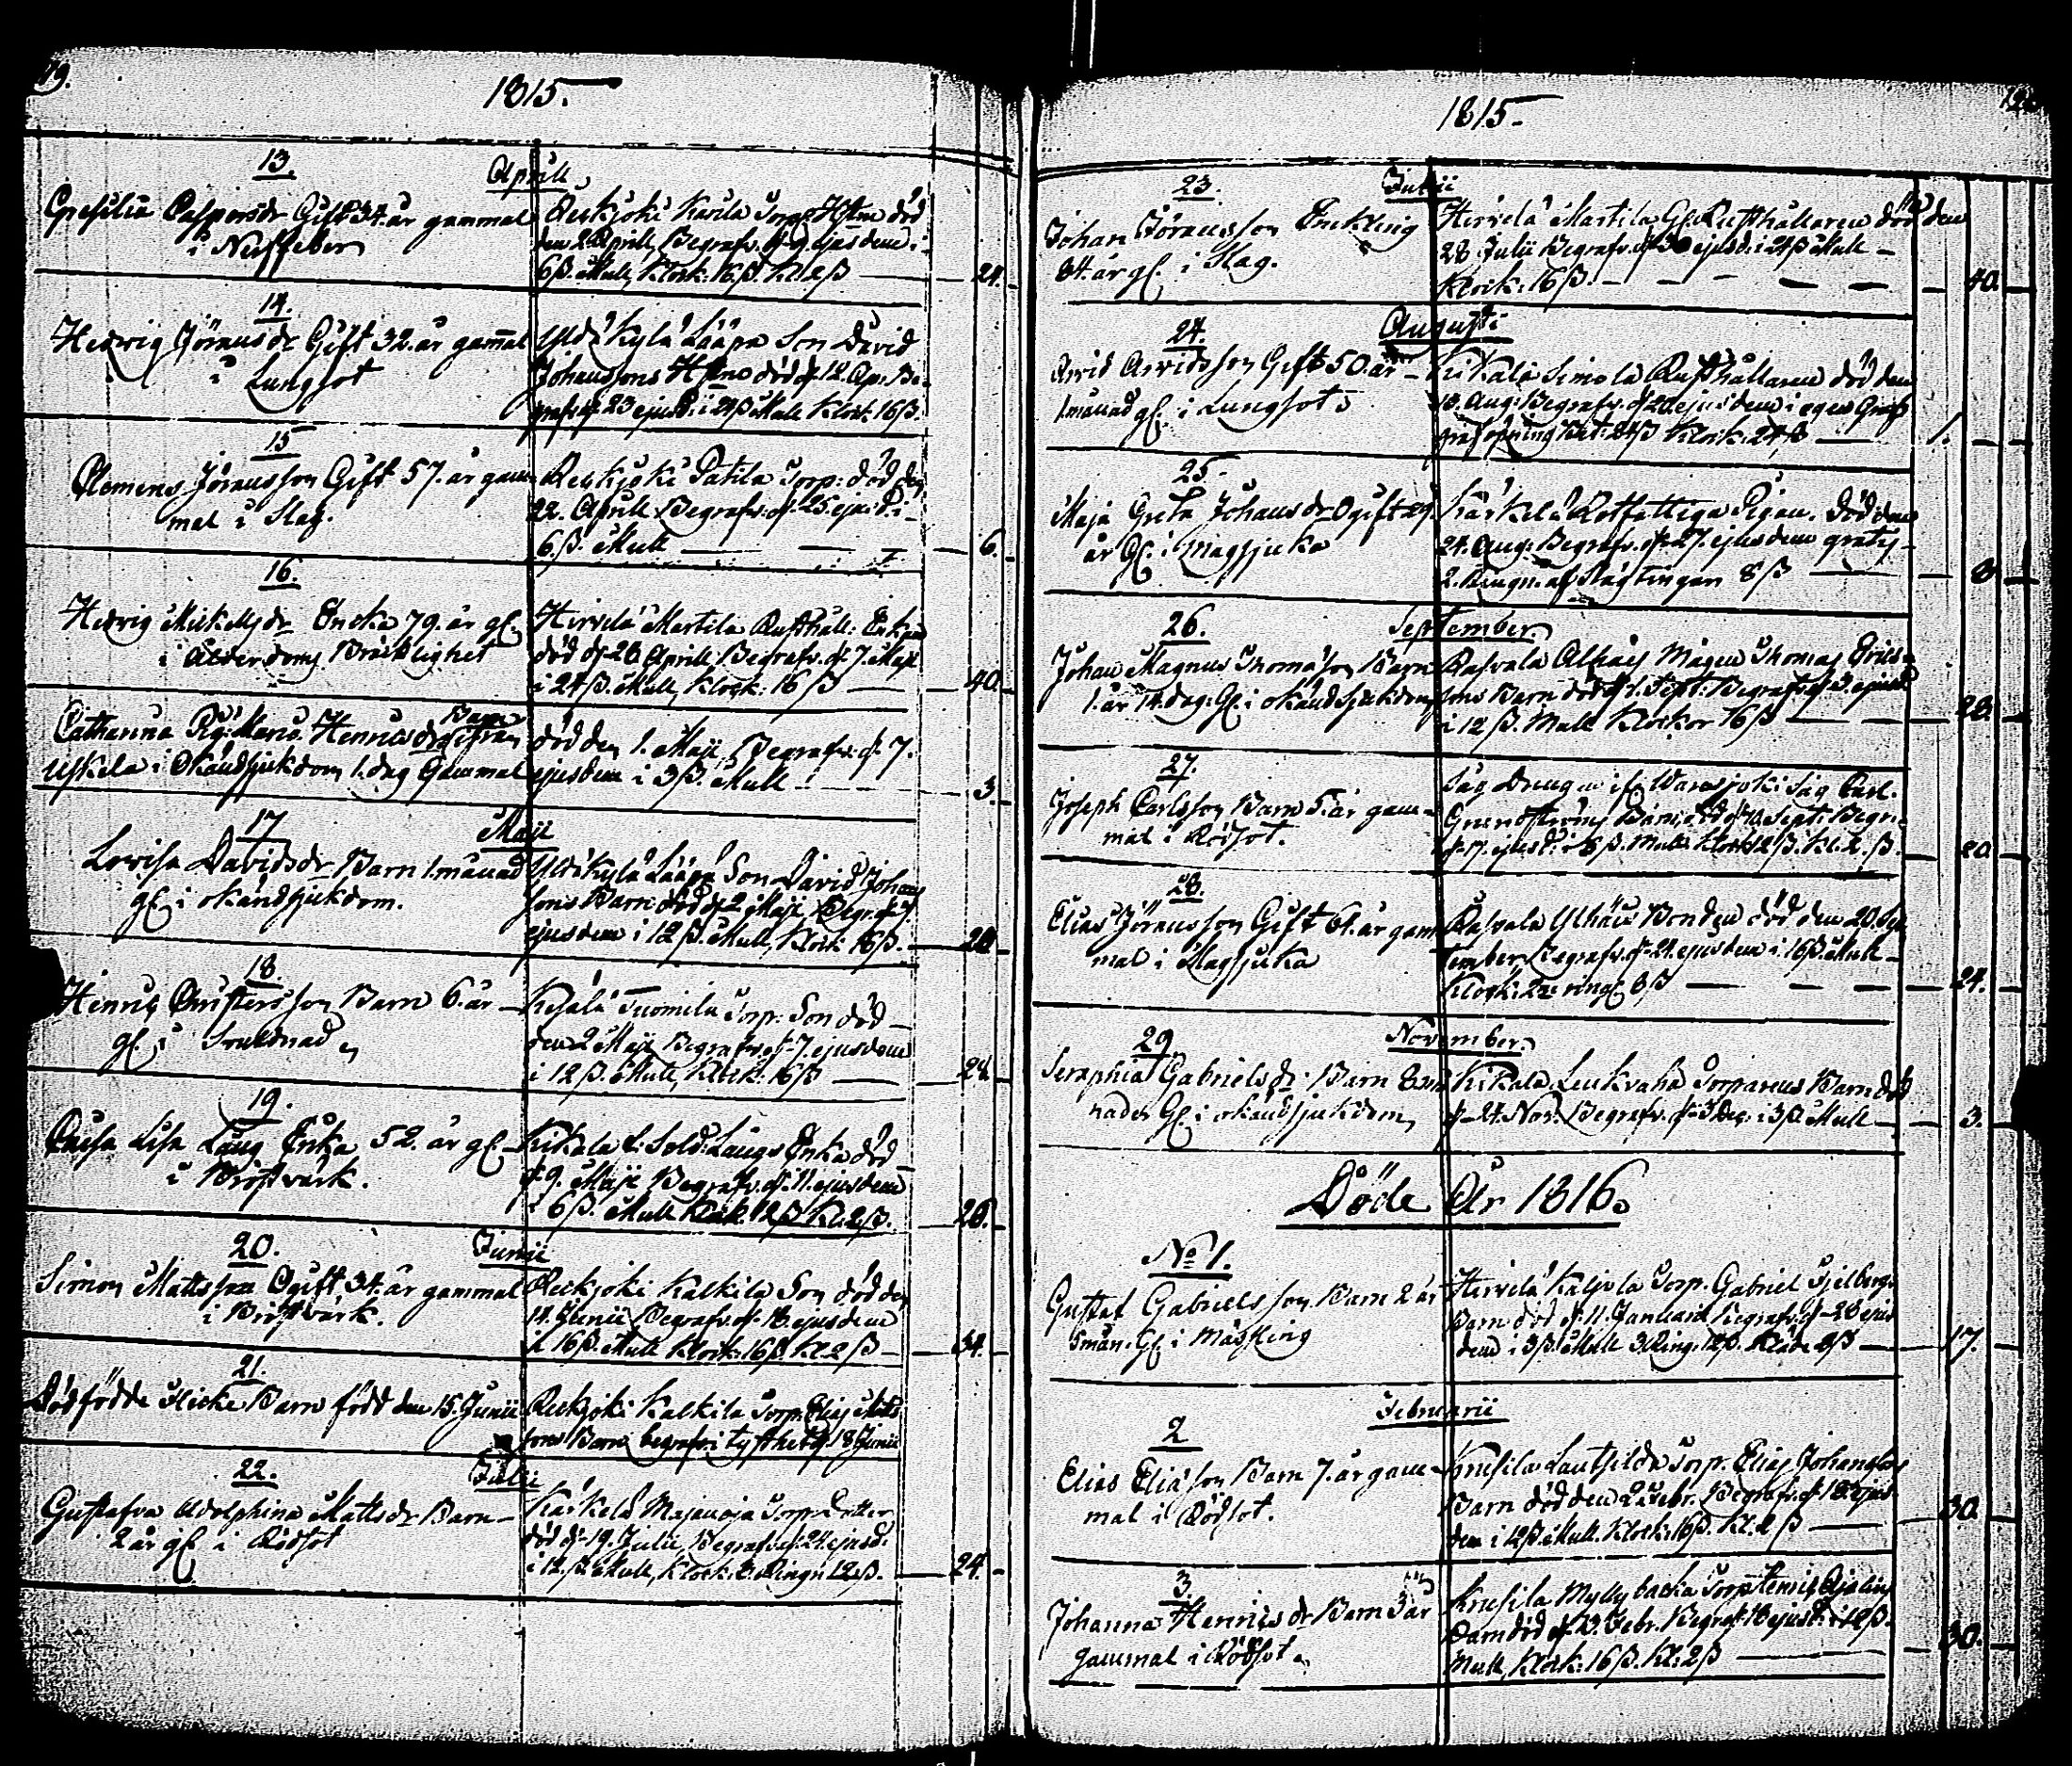 1815.
13.
Aprill
Cresilia Caspersdr Gift 34. år gammal
i Nerffeber
Reckjoki Karila Torp Hstru död
den 2 Aprill, Begrafv. d. 9. ejusdem i
6 ß. Mull, Klock: 16 ß. Kl: 2 ß
24.
14.
Hedvig Jöransdr Gift 32. år gamal
i Lungsot
Yldikylä Lääpä Son David
Johanssons Hstru död d. 12. Apr. Be-
grafv. d. 23 ejusd. i 24 ß Mull Klock: 16 ß.
15
Clemens Jöransson Gift 57. år gam-
mal i Slag.
Reckjoki Patila Torp: död den
22. Aprill Begrafv. d. 25. ejusd. i
6. ß. Mull
6.
16.
Hedvig Mickelsdr Encka 79. år gl.
i Ålderdoms Bräcklighet
Hirvelä Martila Rusthåll: Enkan
död d. 28 Aprill, Begrafv. d. 7. Maji
i 24 ß. Mull, Klock: 16 ß
40.
Catharina Pig: Maria Henricsdrs Barn ifrån
Uskela i Okänd sjukdom 1. dag Gammal
död den 1. Maji, Begrafv: d. 7.
ejusdem i 3 ß. Mull
3.
17
Maji
Lovisa Davidsdr Barn 1. månad
gl. i okänd sjukdom.
Yldikylä Lääpä Son David Johans
sons Barn död d. 2 Maji, Begr. d. 7.
ejusdem i 12 ß. Mull, Klock: 16 ß.
28
18.
Henric Christersson Barn 6. år
gl. i
Kesälä Tuomila Torp: Son död
den 2 Maji Begrafv. d. 7. ejusdem
i 12 ß. Mull, Klock: 16 ß
28.
19.
Caisa Lisa Lång Enka 52. år gl.
i Bröstvärk.
Kikala f: Sold: Långs Enka död
d. 9. Maji Begrafv. d. 11. ejusdem
i 6 ß. Mull Klock 12 ß Kl: 2 ß.
20.
20.
Junii
Simon Mattsson Ogift 34. år gammal
i Bröstvärk.
Reckjoki Kalkila Son död den
14. Junii Begrafv. d. 18. ejusdem
i 16 ß. Mull Klock: 16 ß. Kl: 2 ß
34.
21.
Dödfödde Flicke Barn född den 15. Junii
Reckjoki Kalkila Torp: Elias Matts
sons Barn begrafv. i tysthet d. 18 Junii
22.
Julii
Gustafva Adolphina Mattsdr Barn
2 år gl. i Rödsot
Kärkelä Majanoja Torp: Dotter
död d. 19. Julii, Begrafv. d. 24. ejusd.
i 12. ß Mull, Klock: 3 Ringn: 12 ß.
24.
1815
23.
Julii
Johan Jöransson Enckling
84. år gl. i Slag.
Hirvelä Martila Gl. Rusthållaren död den
28 Julii Begrafv. d. 30 ejusd. i 24 ß Mull
Klock: 16 ß.
40.
24.
Augusti
Arvid Arvidsson Gift 50. år
1. månad gl. i Lungsot
Kikala Simola Rusthållaren död den
18. Aug: Begrafv. d. 20. ejusdem i egen Graf
graföpning Bet: 24 ß Klock: 24 ß
1.
25.
Maja Greta Johansdr Ogift 29.
år Gl. i Magsjuka
Kärkelä Rotfattiga Pigan. död den
24. Aug: Begrafv. d. 27. ejusdem gratis
2. Ringn: af Slägtingar 8 ß
8
26.
September
Johan Magnus Thomasson Barn
1. år 14. dag: Gl. i okänd sjukdom
Rasvala Alhais Mågen Thomas Erics
sons Barn död d. 1. Sept: Begrafv. d. 3. ejusd.
i 12 ß. Mull Klockor 16 ß
28.
27.
Joseph Carlsson Barn 5. år gam-
mal i Rödsot.
Såg Drengen ifr. Warisjoki Såg Carl.
Grundströms Barn, död d. 10. Sept: Begr.
d. 17. ejusd. i 6 ß. Mull. Klock: 12 ß. Kl: 2. ß.
20
28.
Elias Jöransson Gift 61. år gam
mal i Magsjuka
Rasvala Ylhäis Bonden död den 20. Sep
tember Begrafv. d. 24. ejusdem i 16 ß. Mull
Klock: 2ne ring: 8 ß
24.
29.
November.
Seraphia Gabrielsdr Barn 8 må
nader Gl. i okänd sjukdom
Kikala Leukvaha Torparens Barn död
d. 24. Nov: Begrafv. d. 3 Dec: i 3 ß. Mull
3.
Döde År 1816.
No 1.
Gustaf Gabrielsson Barn 2 år
5 mån. Gl. i Mässling
Hirvelä Kaljola Torp. Gabriel Sjelbergs
Barn död d. 11. Januarii Begrafv. d. 28 ejus
dem i 3 ß. Mull 3 Ring: 12 ß. Kläde 2 ß
17.
Februarii
2
Elias Eliasson Barn 7. år gam
mal i Rödsot.
Krusila Lautsilda Torp. Elias Johanssons
Barn död den 2 Febr. Begrafv. d. 18 ejus
dem i 12 ß. Mull. Klock: 16 ß. Kl: 2 ß
30.
3.
Johanna Henricsdr Barn 3 år
gammal i Rödsot
Krusila Myllybacka Torp: Henric Sjelins
Barn död d. 13. Febr. Begraf. 18 ejusd. i 12 ß.
Mull, Klock: 16 ß. Kl: 2 ß
30.